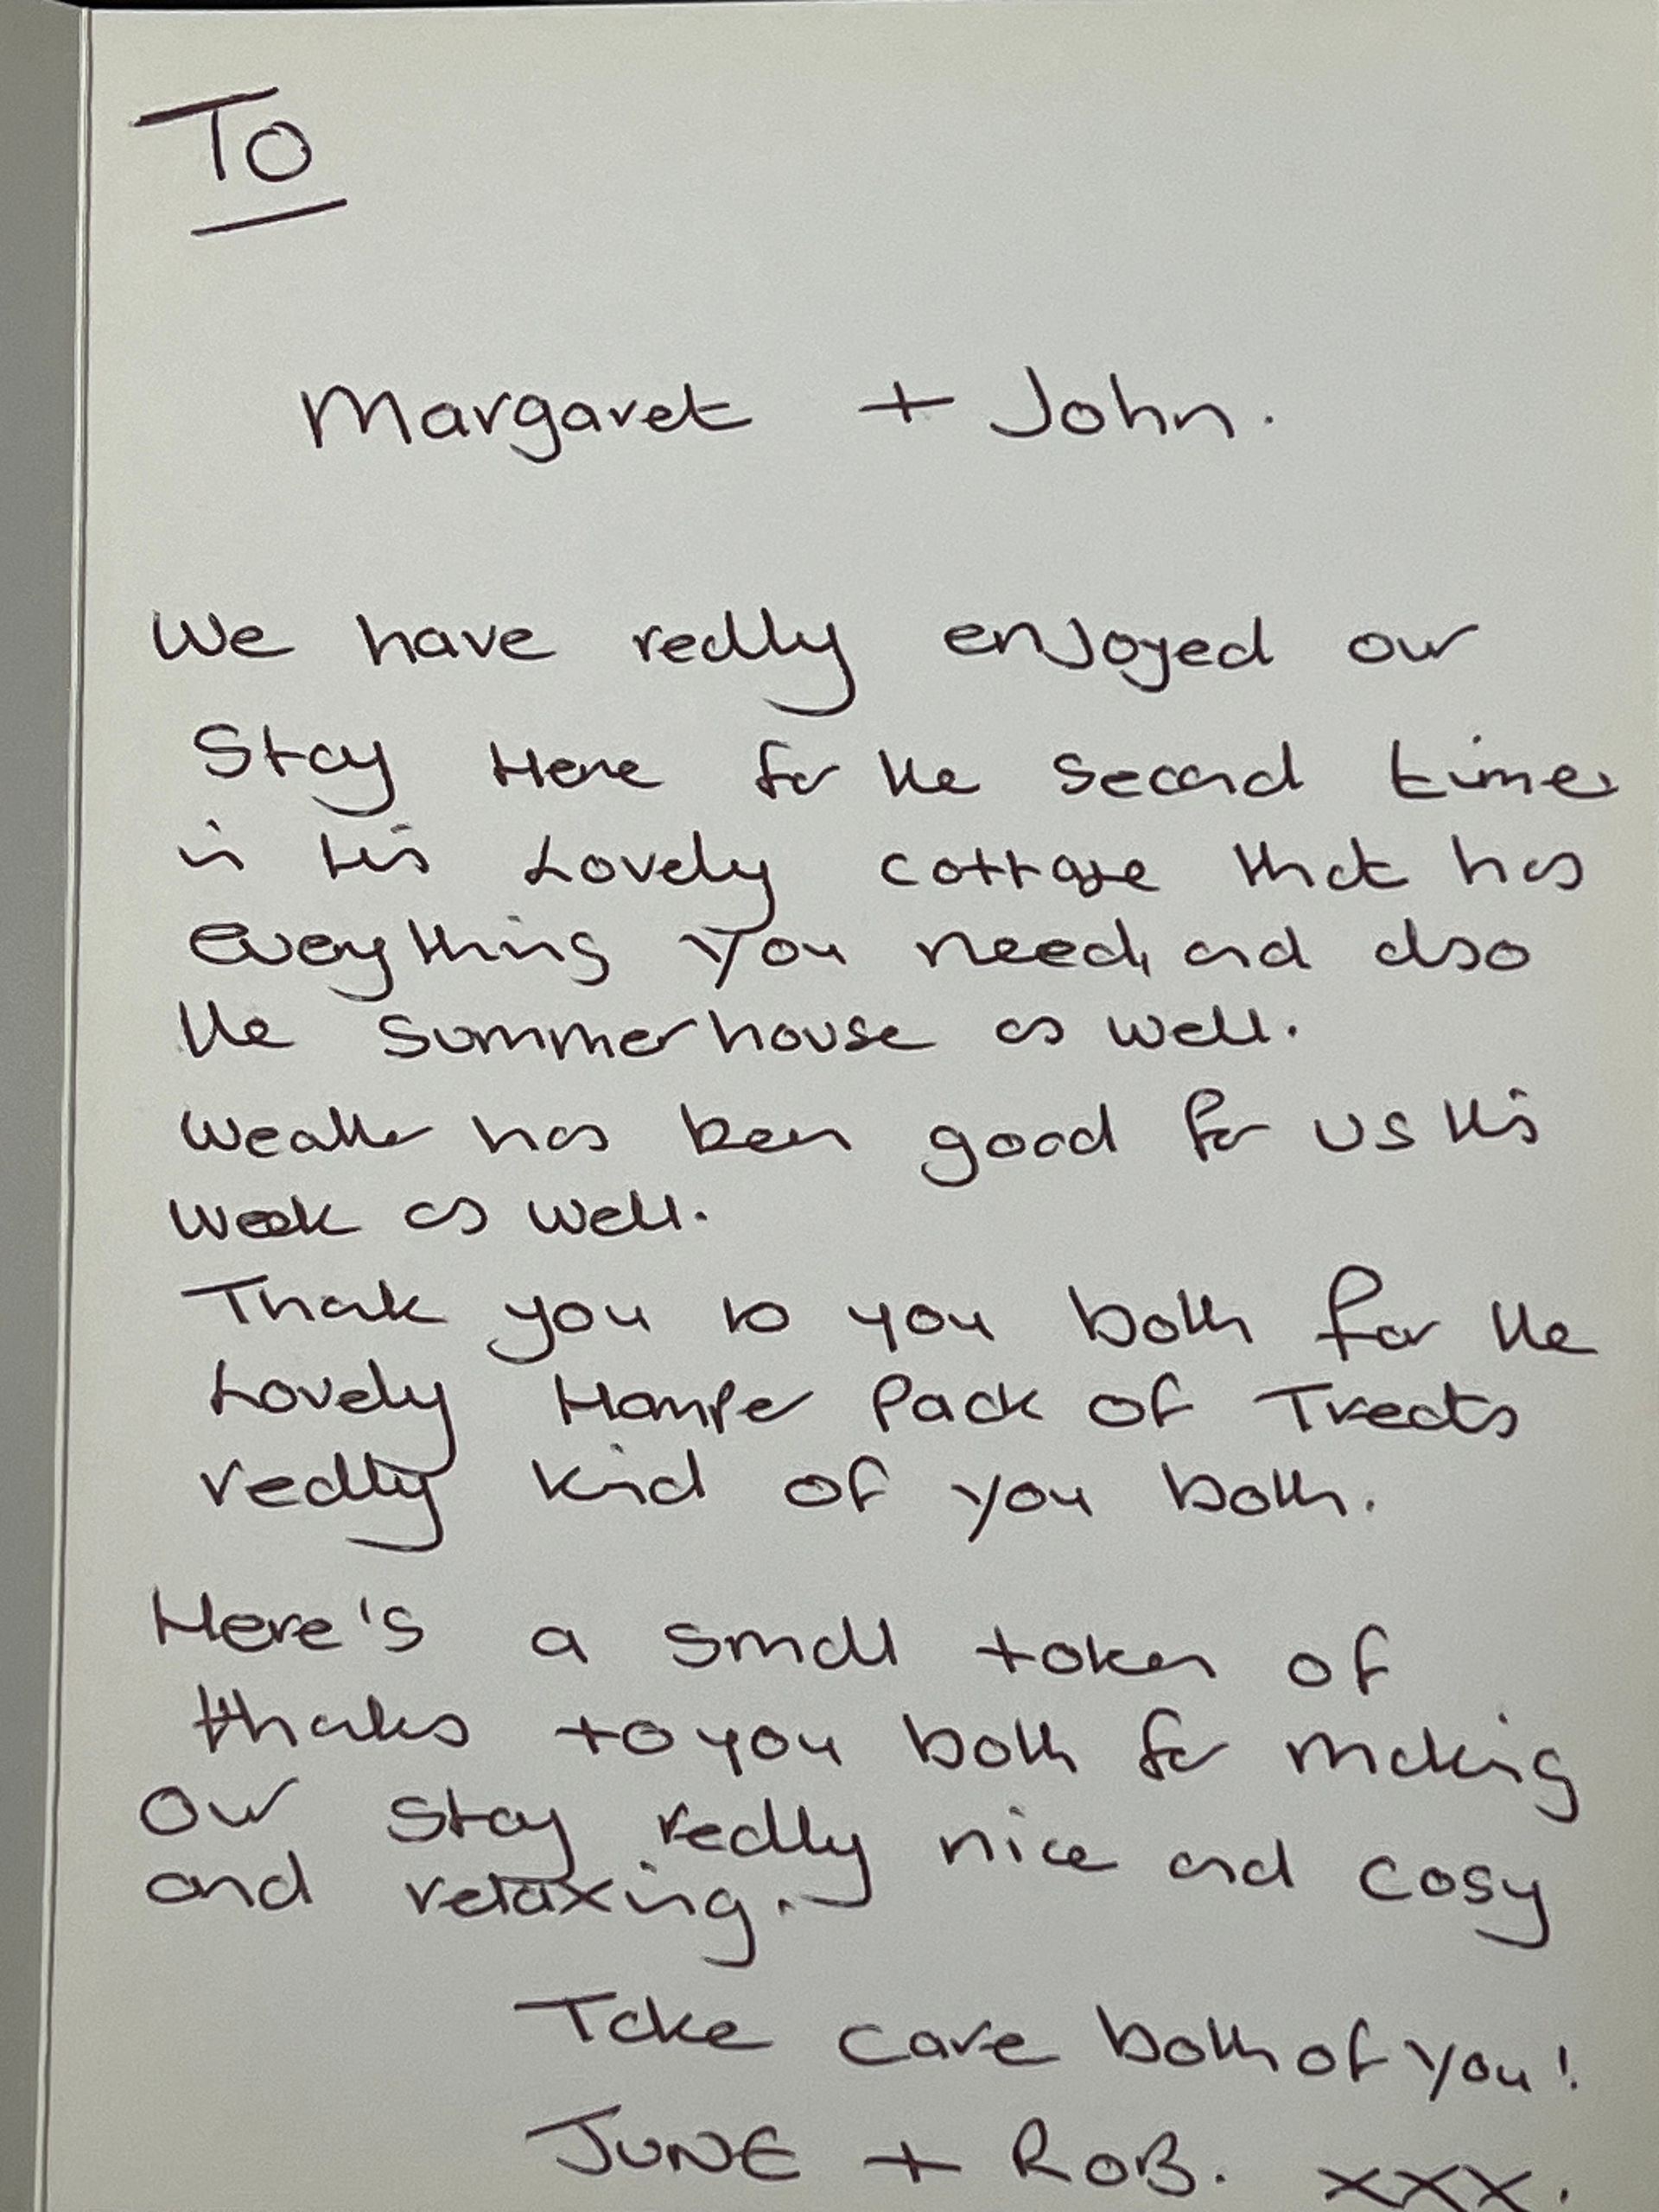 To
Margaret + John.
We have really enjoyed our
Stay Here for the second time
in this Lovely cottage that has
everything you need, and also
the summerhouse as well.
Weather has been good for us this
week as well.
Thank you to you both for the
Lovely Hamper Pack of Treats
really kind of you both.
Here's a small token of
thanks to you both for making
our stay really nice and cosy
and relaxing.
Take care both of you!
JUNE + ROB. xxx.